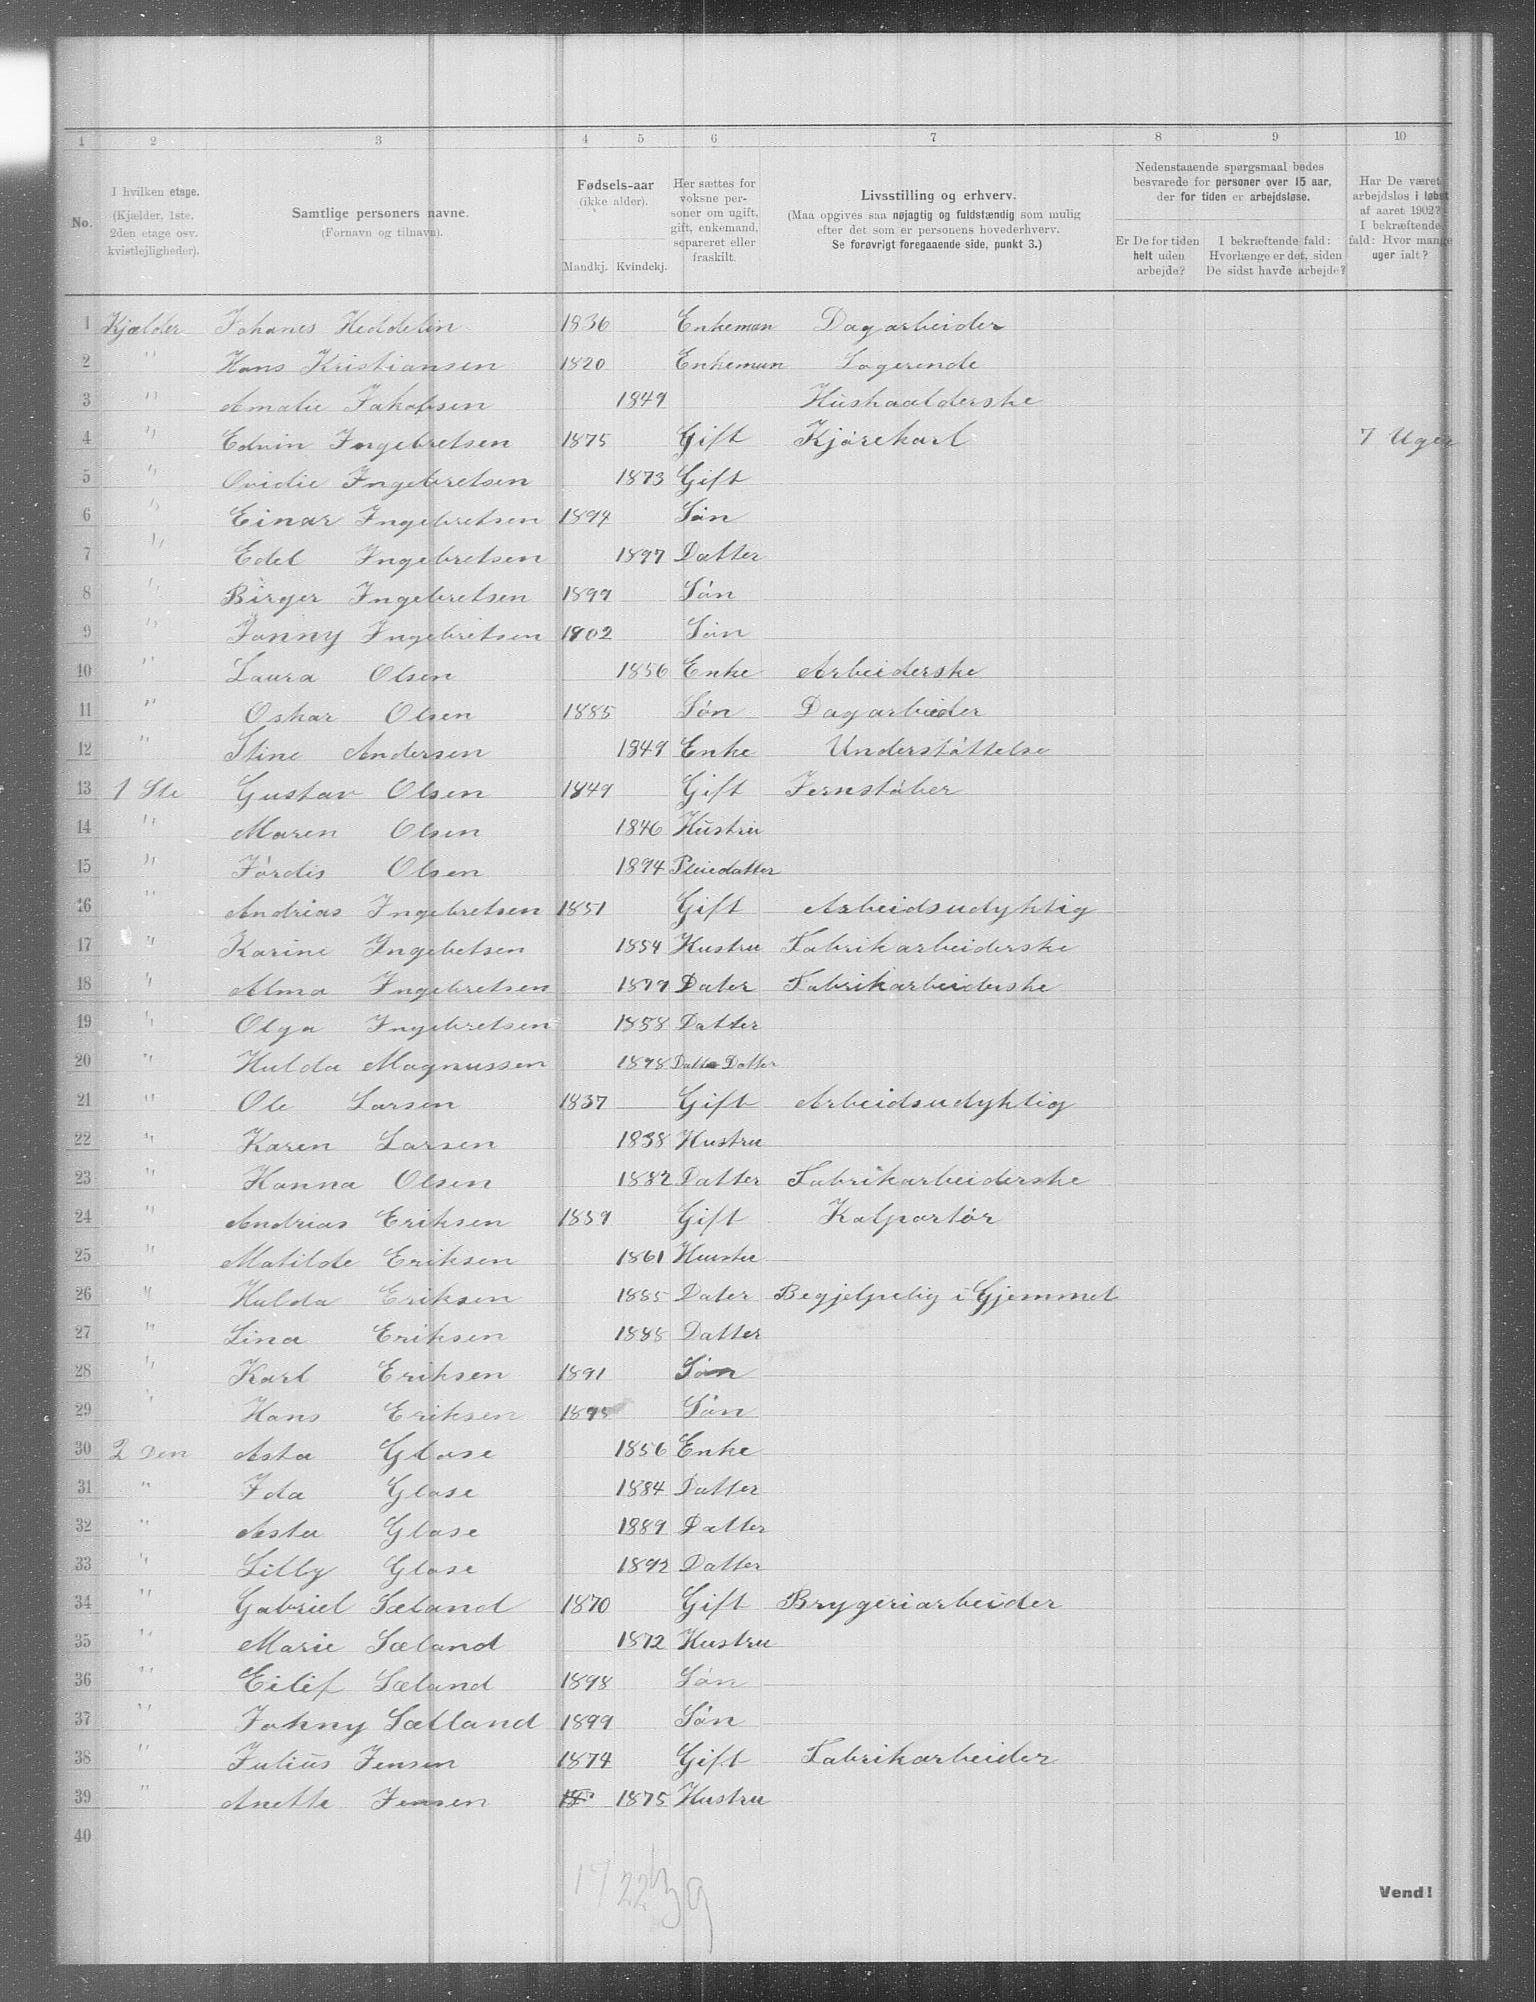 1 2 3 4 5 6 7 8 9 10
No.
I hvilken etage.
(Kjælder, 1ste,
2den etage osv.
kvistlejligheder).
Samtlige personers navne.
(Fornavn og tilnavn).
Fødsels-aar
(ikke alder).
Mandkj. Kvindekj.
Her sættes for
voksne per-
soner om ugift,
gift, enkemand,
separeret eller
fraskilt.
Livsstilling og erhverv.
(Maa opgives saa nøjagtig og fuldstændig som mulig
efter det som er personens hovederhverv.
Se forøvrigt foregaaende side, punkt 3.)
Nedenstaaende spørgsmaal bedes
besvarede for personer over 15 aar,
der for tiden er arbejdsløse.
Er De for tiden
helt uden
arbejde?
I bekræftende fald:
Hvorlænge er det, siden
De sidst havde arbejde?
Har De været
arbejdsløs i løbet
af aaret 1902?
I bekræftende
fald: Hvor mange
uger ialt?
1 Kjælder Johanes Heddelin 1836 Enkeman Dagarbeider
2 " Hans Kristiansen 1820 Enkeman Logerende
3 " Amalie Jakobsen 1849 Hushaalderske
4 " Edvin Ingebretsen 1875 Gift Kjørekarl 7 Uger
5 " Ovidie Ingebretsen 1873 Gift
6 " Einar Ingebretsen 1894 Søn
7 " Edel Ingebretsen 1897 Datter
8 " Birger Ingebretsen 1899 Søn
9 " Jonny Ingebritsen 1902 Søn
10 " Laura Olsen 1856 Enke Arbeiderske
11 " Oskar Olsen 1885 Søn Dagarbeider
12 " Stine Andersen 1849 Enke Understøttelse
13 1 Ste Gustav Olsen 1849 Gift Jernstøber
14 " Maren Olsen 1846 Hustru
15 " Jørdis Olsen 1894 Pleiedatter
16 " Andrias Ingebretsen 1851 Gift Arbeidsudyktig
17 " Karine Ingebetsen 1854 Hustru Fabrikarbeiderske
18 " Alma Ingebretsen 1879 Dater Fabrikarbeiderske
19 " Olga Ingebretsen 1888 Datter
20 " Hulda Magnussen 1898 Datte Datter
21 " Ole Larsen 1837 Gift Arbeidsudyktig
22 " Karen Larsen 1838 Hustru
23 " Hanna Olsen 1882 Datter Fabrikarbeiderske
24 " Andrias Eriksen 1859 Gift Kolportør
25 " Matilde Eriksen 1861 Hustru
26 " Hulda Eriksen 1885 Dater Begjelpelig i Gjemmet
27 " Lina Eriksen 1888 Datter
28 " Karl Eriksen 1891 Søn
29 " Hans Eriksen 1895 Søn
30 2 Den Asta Glose 1856 Enke
31 " Ida Glose 1884 Datter
32 " Asta Glose 1889 Datter
33 " Lilly Glose 1892 Datter
34 " Gabriel Sæland 1870 Gift Brygeriarbeider
35 " Marie Sæland 1872 Hustru
36 " Eilif Sæland 1898 Søn
37 " Johny Sælland 1899 Søn
38 " Julius Jensen 1874 Gift Fabrikarbeider
39 " Anette Jensen 18 1875 Hustru
40
17 22 39
Vend!